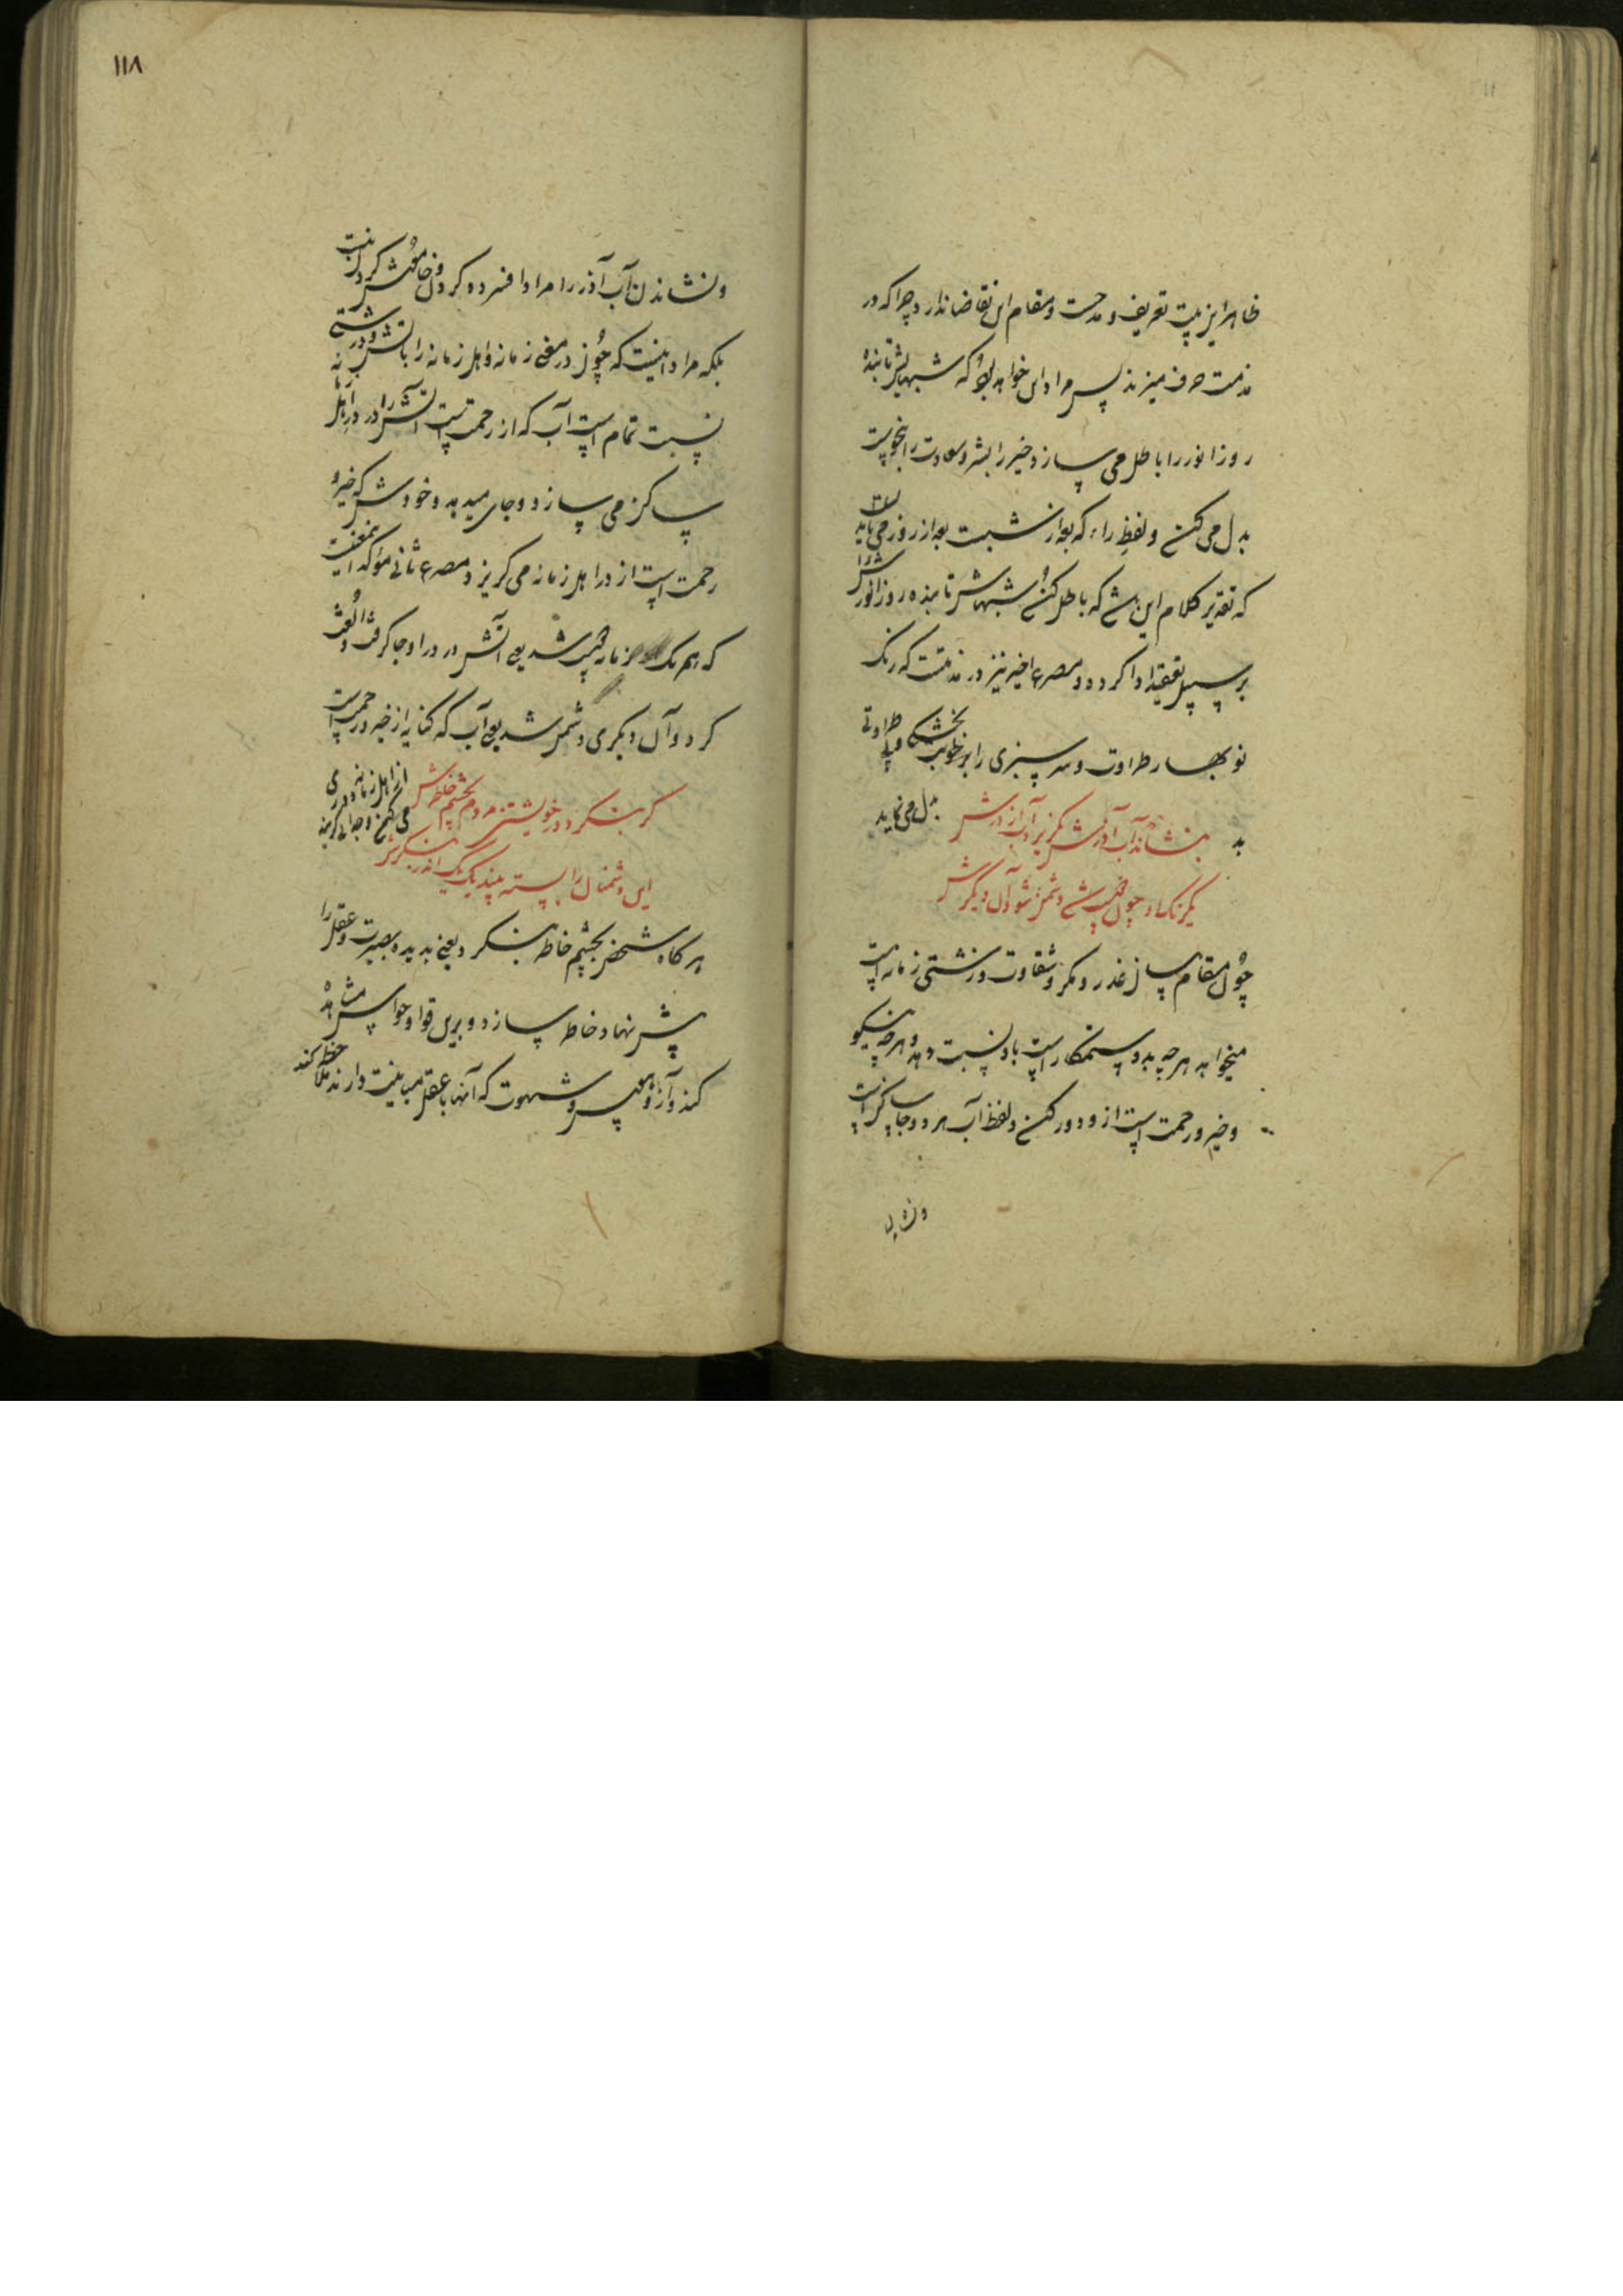 ظاهر این بیت تعریف و مدحست و مقام این تقاضا ندارد چرا که در
مذمت حرف میزند پس مراد این خواهد بود که شبهایش تابنده
روز انور را باطل می سازد و خیر را بشر و سعادت را بنحوست
بدل می کند و لفظ را که بعد از شبست بعد از روز می باید
که تقدیر کلام این باشد که باطل کند شبهاش تابنده روز انورش را
بر سبیل تعقید ادا کرده و مصرع اخیر نیز در مذمتست که رنگ
نو بهار طراوت و سرسبزی را بزه خویش بخشکی و بی طراوتی
بدل می نماید
بنشاند آب آذرش بگریزد آب از آذرش
یکرنگ او چون خصم شد دشمن شود آن دیگرش
چون مقام بیان غدر و مکر و شقاوت و زشتی زمانه است
میخواهد هر چه بد و ستمکار است باو نسبت دهد و هر چه نیکو
و خیر و رحمت است از و دور کند و لفظ آب هر دو جا ساکن است
و نشاندن
۱۱۸
و نشاندن آب آذر را مراد افسرده کردن و خاموش کردن نیست
بلکه مراد اینست که چون در معنی زمانه و اهل زمانه را باتش و درشتی
نسبت تمام است آب که از رحمت است آتش را در در اهل
ساکن می سازد و جای میدهد و خودش که خیر و
رحمت است از در اهل زمانه می گریزد و مصرع ثانی مؤکد این معنیست
که هم یک زمانه خصم شد یعنی آتش در در او جا گرفت و الفت
کرد و آن دیگری دشمن شد یعنی آب که کنایه از خیر و رحمت است
از اهل زمانه دوری می کند و جدائی گزیند
گر بنگرد در خویشتن مردم بچشم خاطرش
این دشمنان را بسته بیند یک بیک اندر بنگرش
هر گاه شخصی بچشم خاطر بنگرد یعنی بدیده بصیرت و عقل را
پیش نهاد خاطر سازد و برین قوا و حواس مشاهده
کند و آز و هوس و شهوت که آنها با عقل مباینت دارند ملاحظه کند